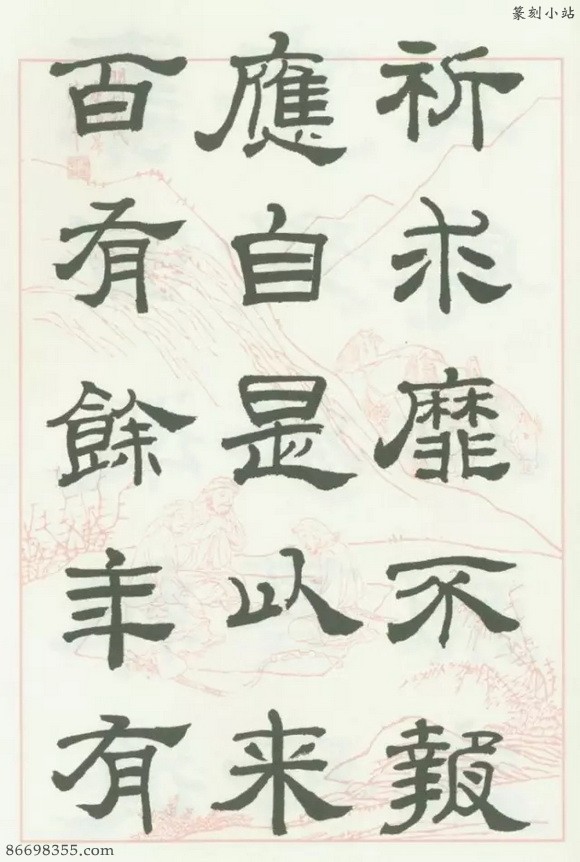 篆刻小站
祈求靡不報
應自是以来
百有餘年有
86698355.com